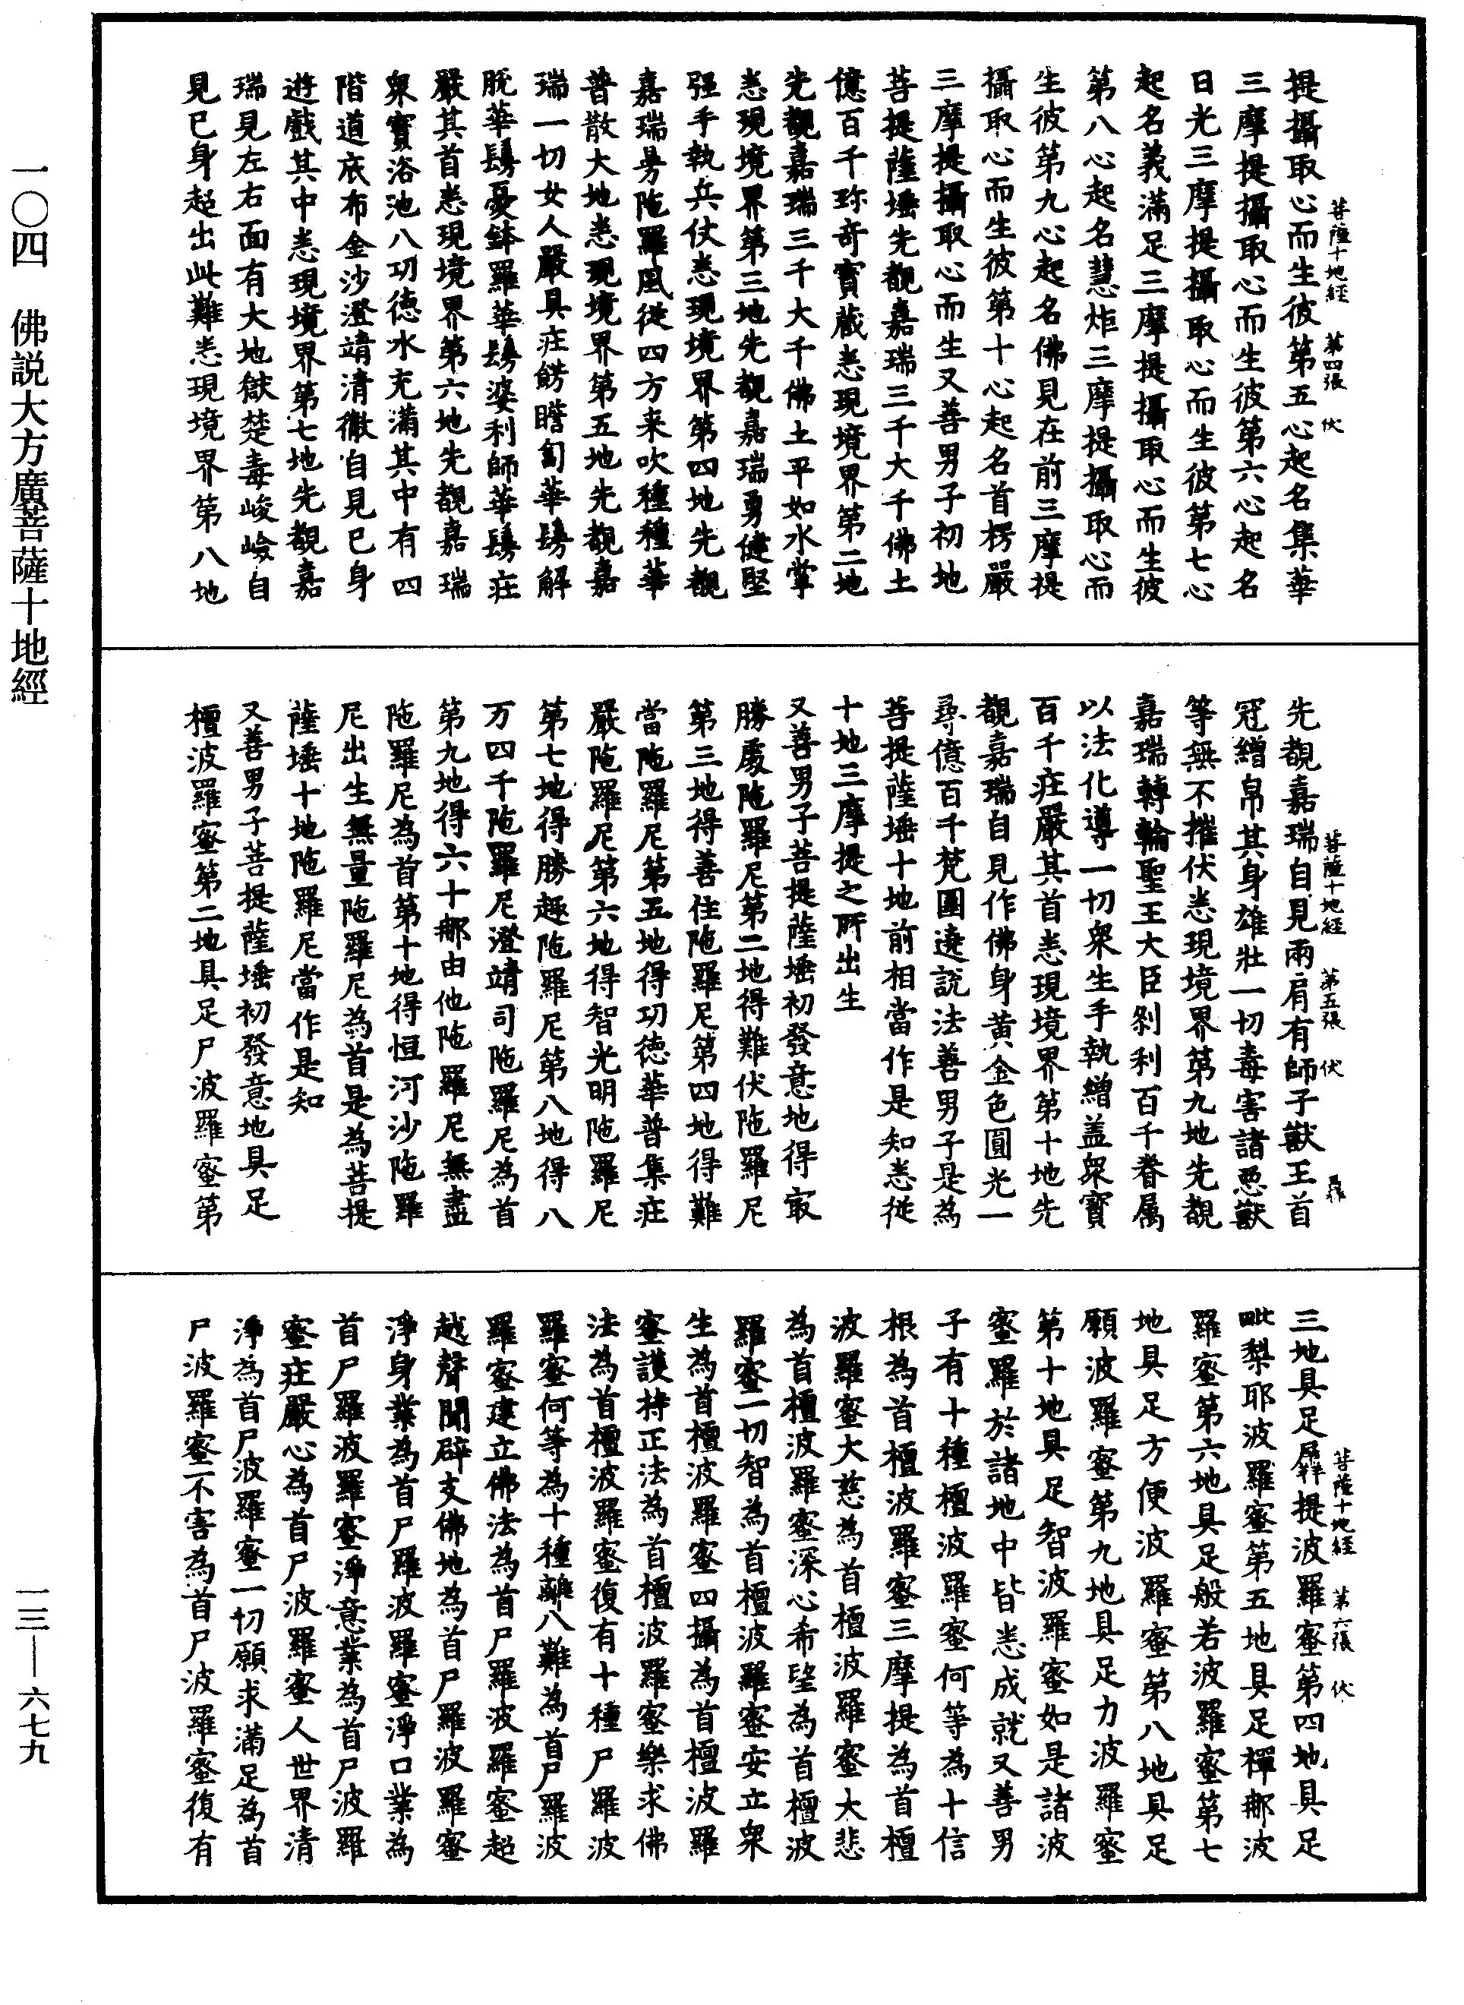 提攝取心而生彼第五心起名集華
三摩提攝取心而生彼第六心起名
日光三摩提攝取心而生彼第七心
起名義滿足三摩提攝取心而生彼
第八心起名慧炬三摩提攝取心而
生彼第九心起名佛見在前三摩提
攝取心而生彼第十心起名首楞嚴
三摩提攝取心而生又善男子初地
菩提薩埵先觀嘉瑞三千大千佛土
億百千珎奇寳藏悉現境界第二地
先觀嘉瑞三千大千佛土平如水掌
悉現境界第三地先觀嘉瑞勇健堅
强手執兵仗悉現境界第四地先觀
嘉瑞旻陁羅風從四方来吹種種華
普散大地悉現境界第五地先觀嘉
瑞一切女人嚴具莊餝瞻匐華鬘解
脫華鬘憂鉢羅華鬘婆利師華鬘莊
嚴其首悉現境界第六地先觀嘉瑞
衆寳浴池八功德水充滿其中有四
階道底布金沙澄靖清徹自見已身
遊戲其中悉現境界第七地先觀嘉
瑞見左右面有大地獄楚毒峻嶮自
見已身起出此難悉現境界第八地
菩薩十地經 第四張 伏
先觀嘉瑞自見兩肩有師子獸王首
冠繒帛其身雄壯一切毒害諸惡獸
等無不摧伏悉現境界第九地先觀
嘉瑞轉輪聖王大臣剎利百千眷属
以法化導一切衆生手執繒盖衆寳
百千莊嚴其首悉現境界第十地先
觀嘉瑞自見作佛身黄金色圓光一
尋億百千梵圍遶說法善男子是為
菩提薩埵十地前相當作是知悉從
十地三摩提之所出生
又善男子菩提薩埵初發意地得㝡
勝處陁羅尼第二地得難伏陁羅尼
第三地得善住陁羅尼第四地得難
當陁羅尼第五地得功德華普集莊
嚴陁羅尼第六地得智光明陁羅尼
第七地得勝趣陁羅尼第八地得八
万四千陁羅尼澄靖司陁羅尼為首
第九地得六十那由他陁羅尼無盡
陁羅尼為首第十地得恒河沙陁羅
尼出生無量陁羅尼為首是為菩提
薩埵十地陁羅尼當作是知
又善男子菩提薩埵初發意地具足
檀波羅蜜第二地具足尸波羅蜜第
菩薩十地經 第五張 伏
三地具足羼提波羅蜜第四地具足
毗梨耶波羅蜜第五地具足禪那波
羅蜜第六地具足般若波羅蜜第七
地具足方便波羅蜜第八地具足
願波羅蜜第九地具足力波羅蜜
第十地具足智波羅蜜如是諸波
蜜羅於諸地中皆悉成就又善男
子有十種檀波羅蜜何等為十信
根為首檀波羅蜜三摩提為首檀
波羅蜜大慈為首檀波羅蜜大悲
為首檀波羅蜜深心希望為首檀波
羅蜜一切智為首檀波羅蜜安立衆
生為首檀波羅蜜四攝為首檀波羅
蜜護持正法為首檀波羅蜜樂求佛
法為首檀波羅蜜復有十種尸羅波
羅蜜何等為十種離八難為首尸羅波
羅蜜建立佛法為首尸羅波羅蜜超
越聲聞辟支佛地為首尸羅波羅蜜
淨身業為首尸羅波羅蜜淨口業為
首尸羅波羅蜜淨意業為首尸波羅
蜜莊嚴心為首尸波羅蜜人世界清
淨為首尸波羅蜜一切願求滿足為首
尸波羅蜜不害為首尸波羅蜜復有
菩薩十地經 第六張 伏
一〇四 佛説大方廣菩薩十地經
一三—六七九